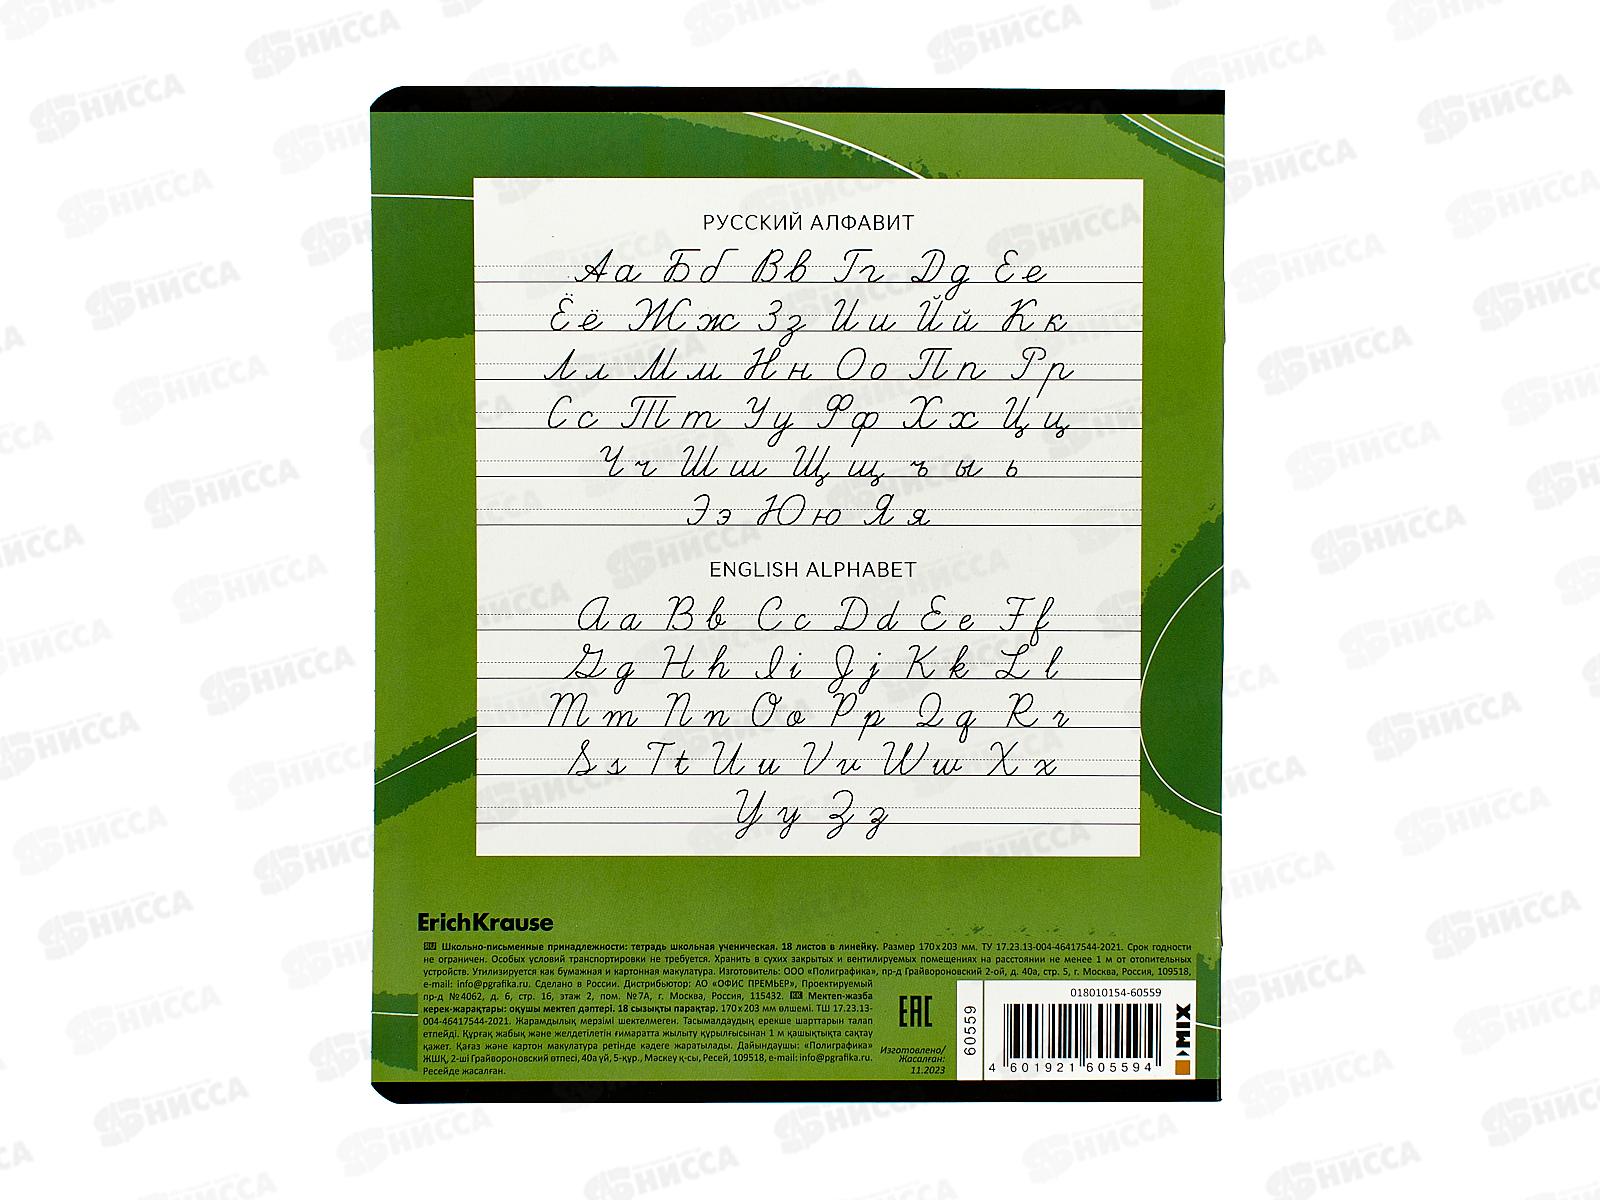 РУССКИЙ АЛФАВИТ
Аа Бб Вв Гг Дд Ее
Ёё Жж Зз Ии Йй Кк
Лл Мм Нн Оо Пп Рр
Сс Тт Уу Фф Хх Цц
Чч Шш Щщ ъ ы ь
Ээ Юю Яя
ENGLISH ALPHABET
Aa Bb Cc Dd Ee Ff
Gg Hh Ii Jj Kk Ll
Mm Nn Oo Pp Qq Rr
Ss Tt Uu Vv Ww Xx
Yy Zz
ErichKrause
RU Школьно-письменные принадлежности: тетрадь школьная ученическая. 18 листов в линейку. Размер 170х203 мм. ТУ 17.23.13-004-46417544-2021. Срок годности
не ограничен. Особых условий транспортировки не требуется. Хранить в сухих закрытых и вентилируемых помещениях на расстоянии не менее 1 м от отопительных
устройств. Утилизируется как бумажная и картонная макулатура. Изготовитель: ООО «Полиграфика», пр-д Грайвороновский 2-ой, д. 40а, стр. 5, г. Москва, Россия, 109518,
e-mail: info@pgrafika.ru. Сделано в России. Дистрибьютор: АО «ОФИС ПРЕМЬЕР», Проектируемый
пр-д №4062, д. 6, стр. 16, этаж 2, пом. №7А, г. Москва, Россия, 115432. KK Мектеп-жазба
керек-жарақтары: оқушы мектеп дәптері. 18 сызықты парақтар. 170х203 мм өлшемі. ТШ 17.23.13-
004-46417544-2021. Жарамдылық мерзімі шектелмеген. Тасымалдаудың ерекше шарттарын талап
етпейді. Құрғақ жабық және желдетілетін ғимаратта жылыту құрылғысынан 1 м қашықтықта сақтау
қажет. Қағаз және картон макулатура ретінде кәдеге жаратылады. Дайындаушы: «Полиграфика»
ЖШҚ, 2-ші Грайвороновский өтпесі, 40а үй, 5-құр., Мәскеу қ-сы, Ресей, 109518, e-mail: info@pgrafika.ru.
Ресейде жасалған.
EAC
Изготовлено/
Жасалған:
11.2023
60559
018010154-60559
4 601921 605594
MIX
АБНИССА